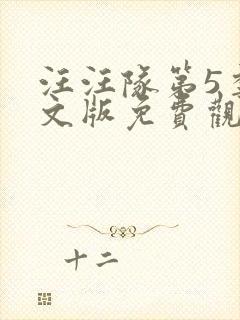 汪汪隊第5
文版免費觀
十二